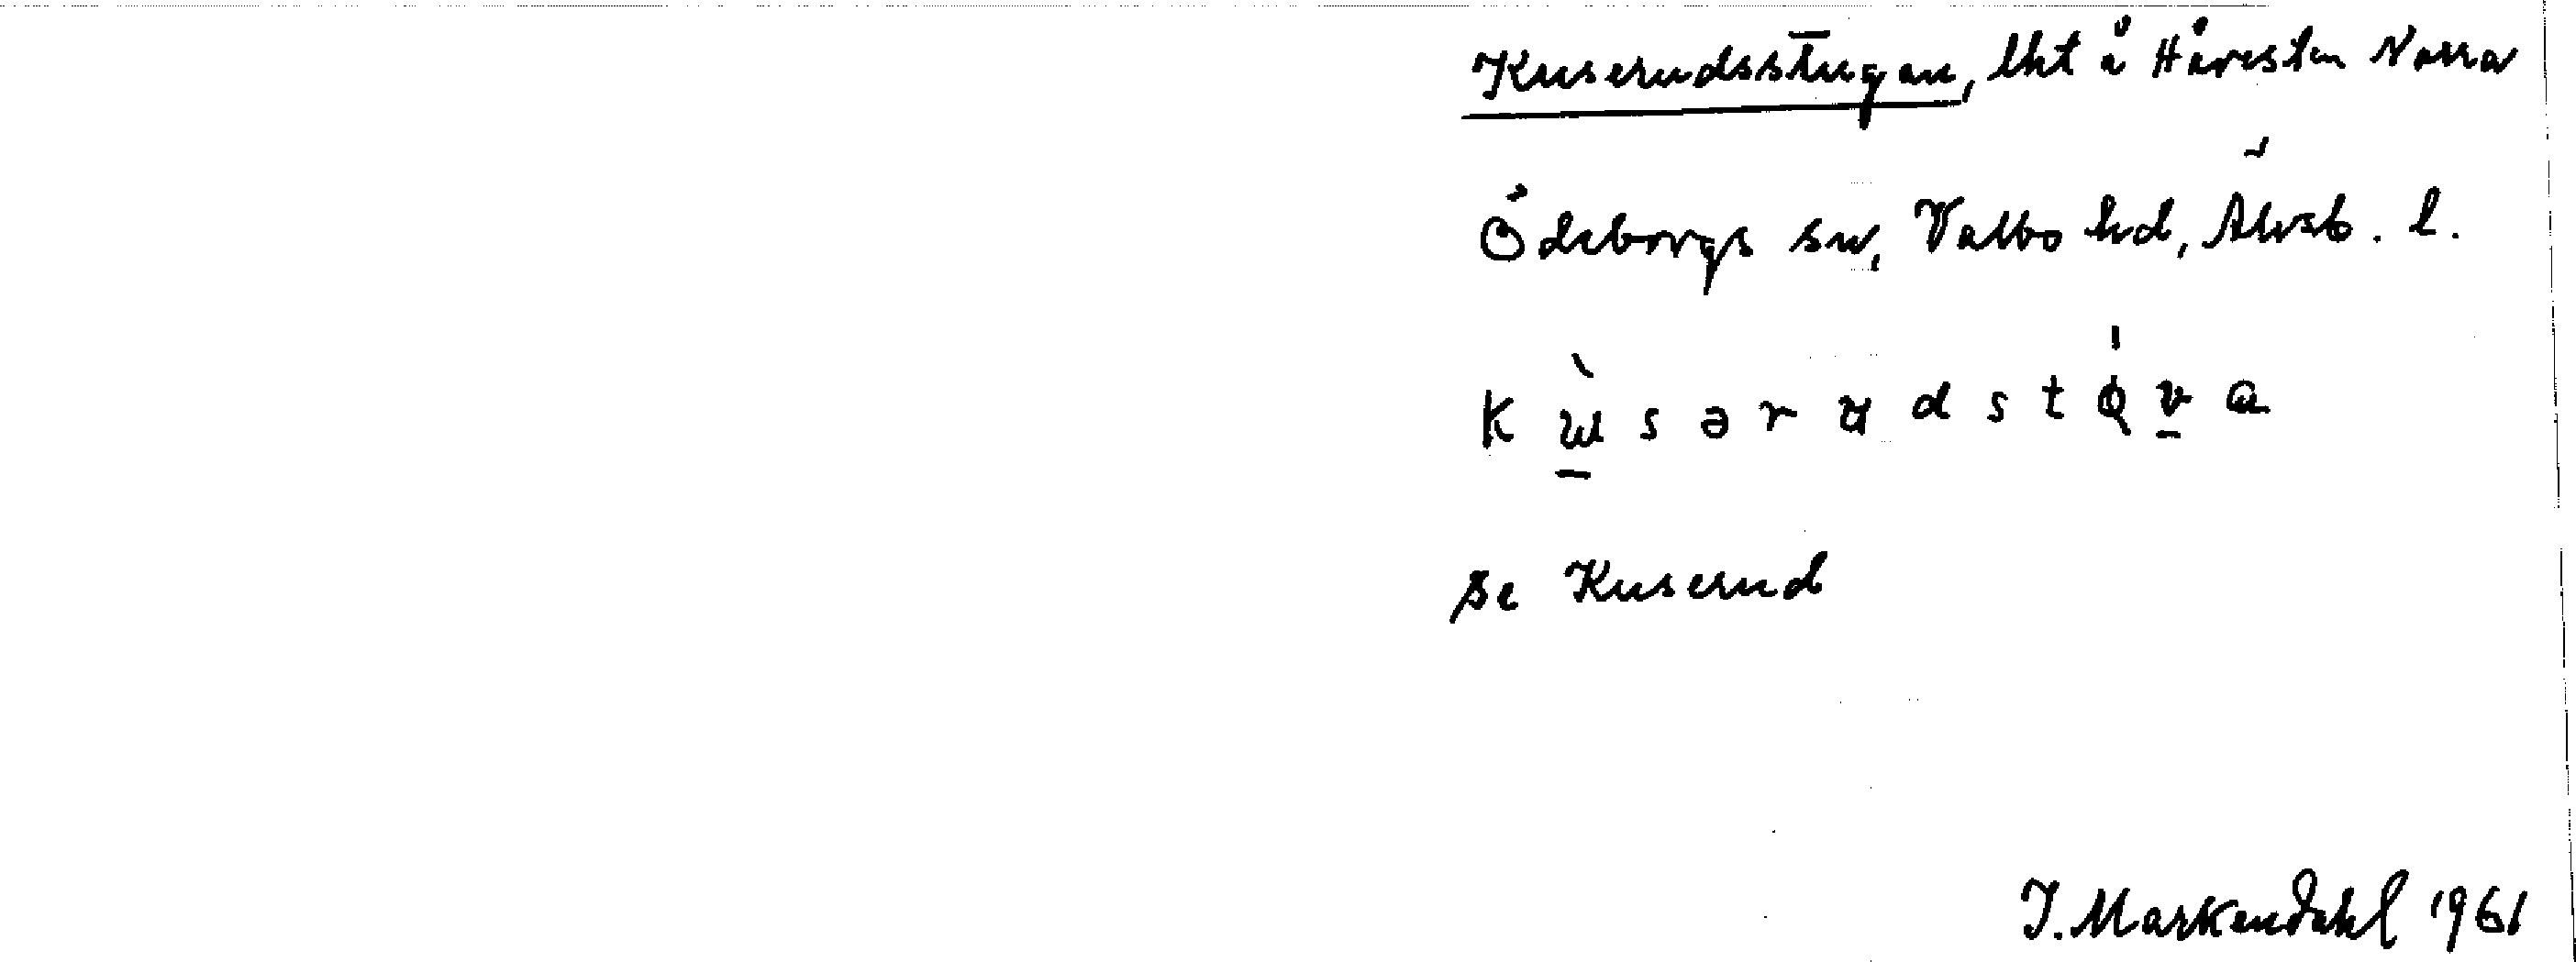 Kuserudsstugan, lht å Håvesten Norra
Ödeborgs sn, Valbo hd, Älvsb. l.
se Kuserud
I. Markendahl 1961